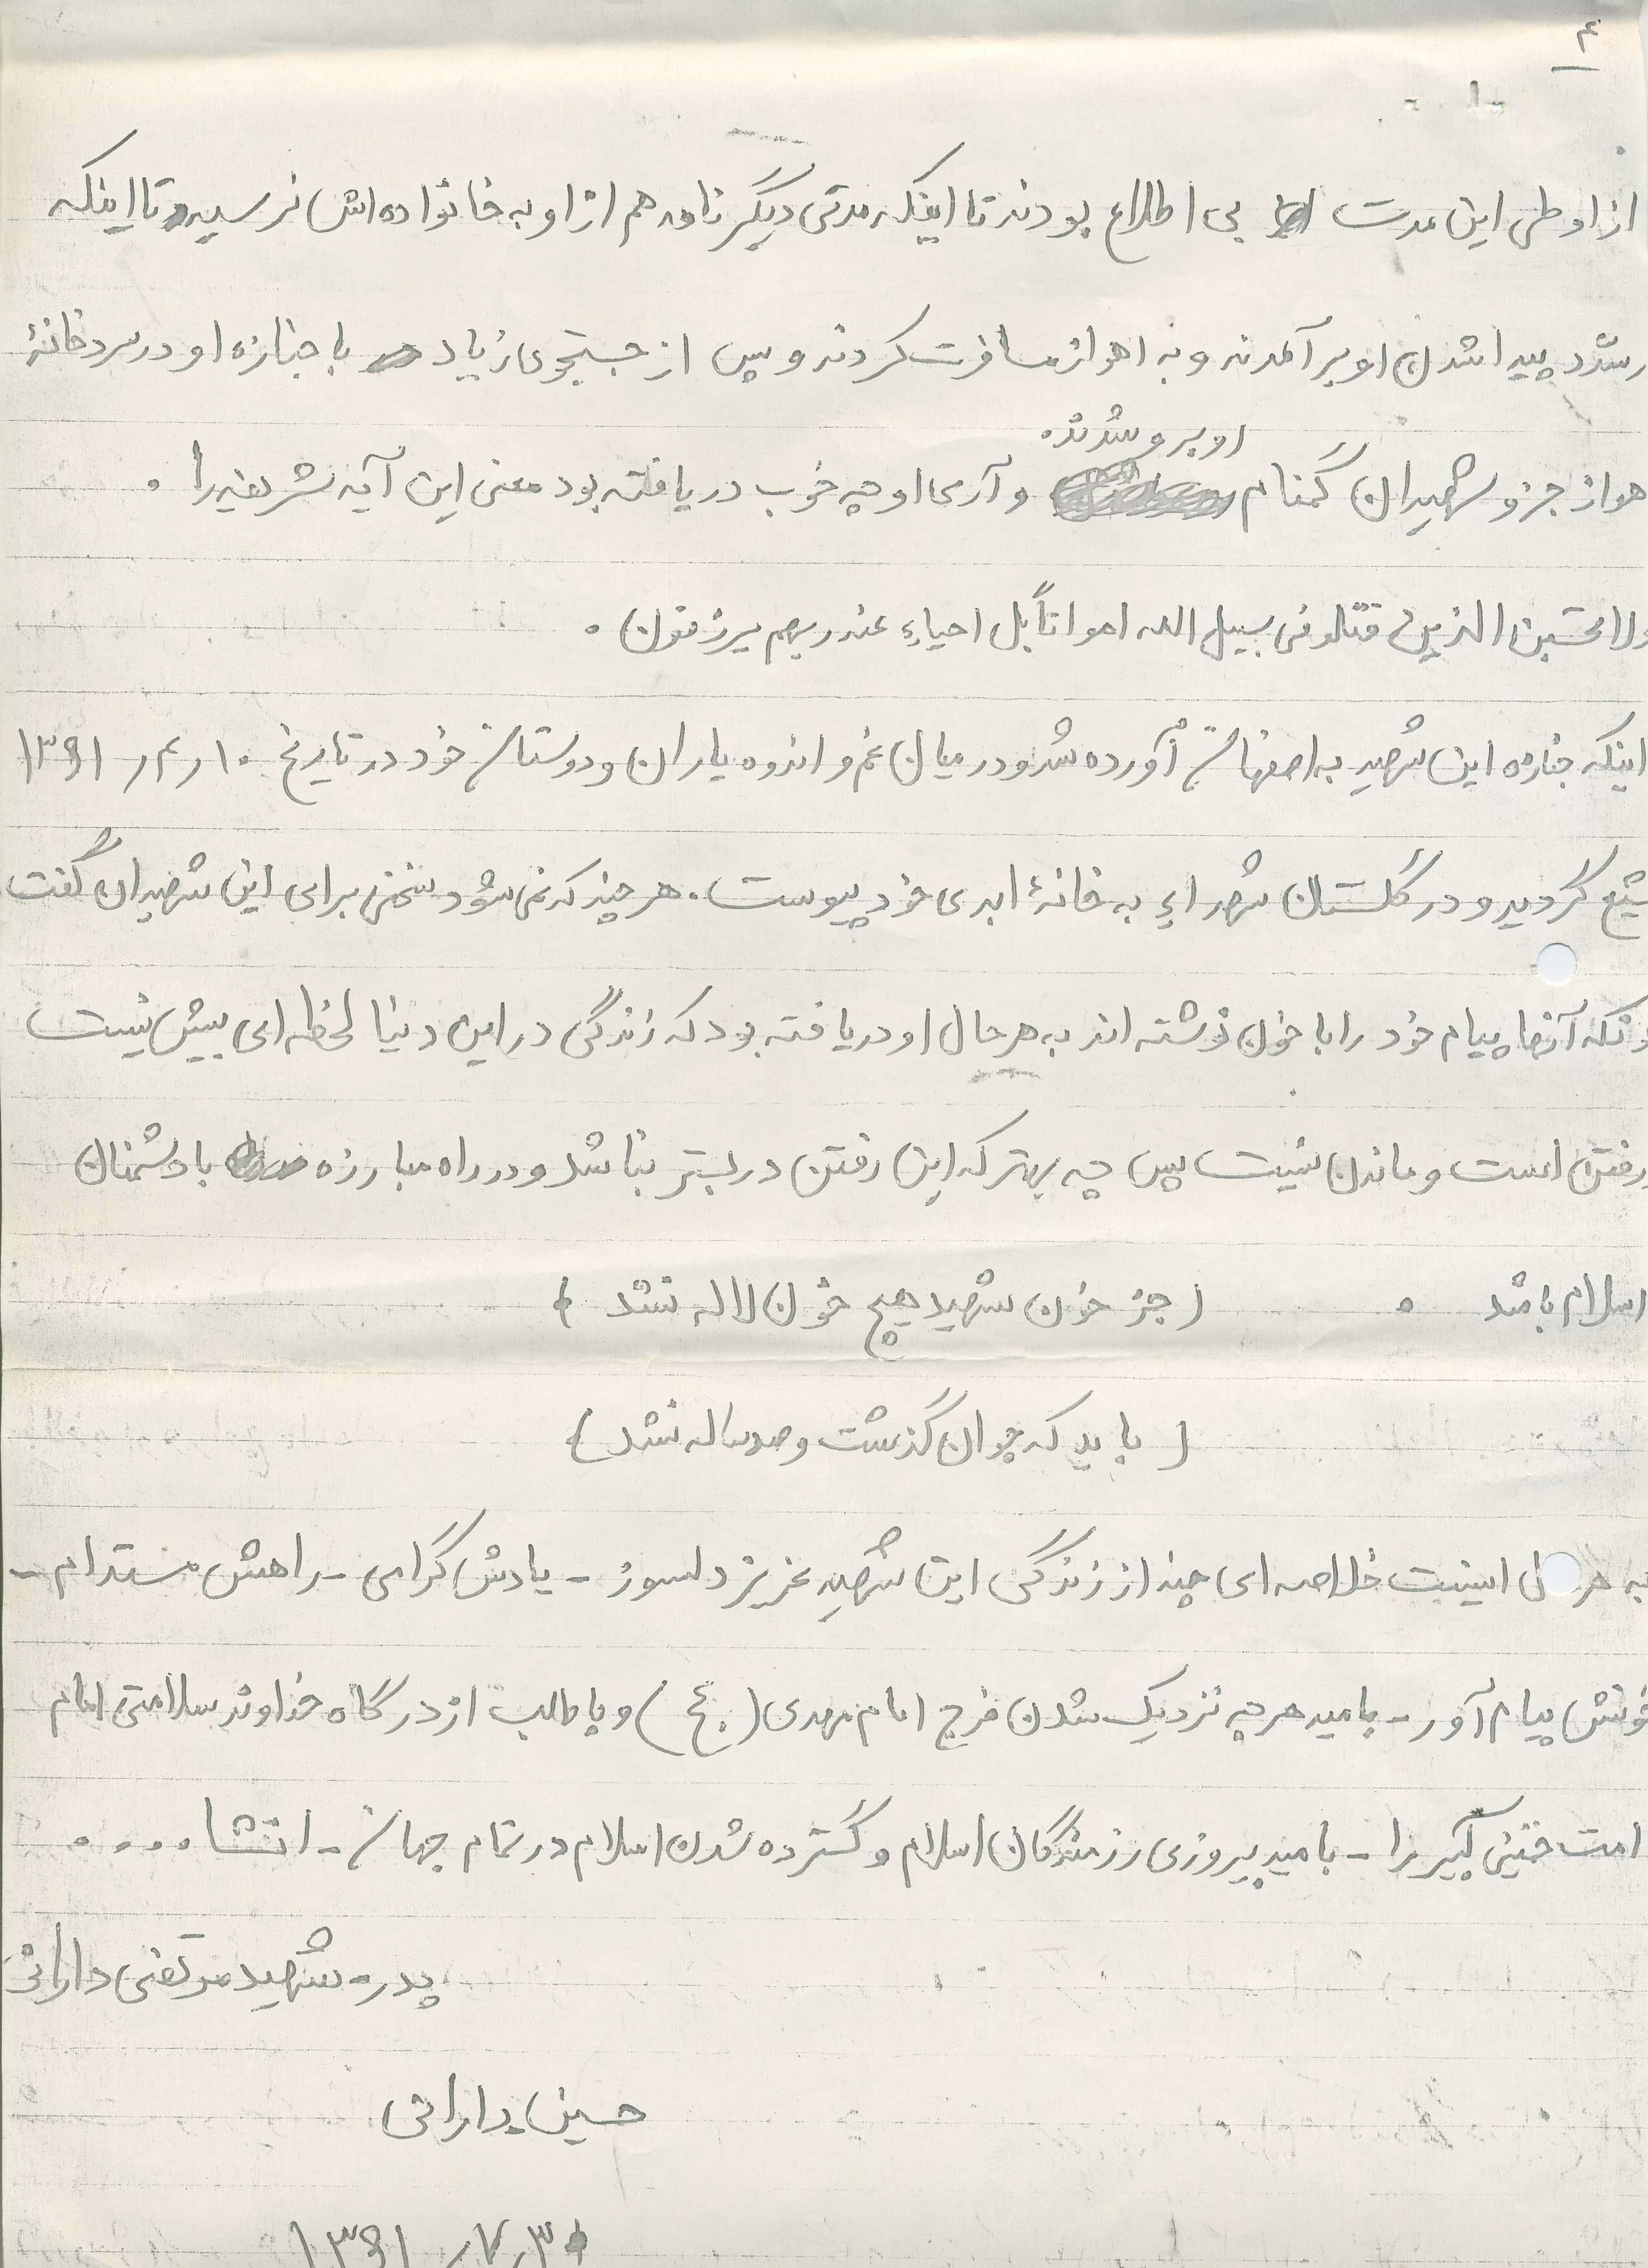 ۴
از او طی این مدت بی اطلاع بودند تا اینکه مدتی دیگر نامه هم از او به خانواده اش نرسید تا اینکه
پیدا شدن او بر آمدند و به اهواز مسافرت کردند و پس از جستجوی زیاد با جنازه او در سردخانهٔ
روبرو شدند.
هواز جزو شهیدان گمنام و آری او چه خوب دریافته بود معنی این آیه شریفه را .
ولا تحسبن الذین قتلو فی سبیل الله امواتاً بل احیاءِ عند ربهم یرزقون .
اینکه جنازه این شهید به اصفهان آورده شد و در میان غم و اندوه یاران و دوستان خود در تاریخ ۱۰ر۴ر۱۳۶۱
شیع گردید و در گلستان شهداءِ به خانهٔ ابدی خود پیوست. هر چند که نمی شود سخنی برای این شهیدان گفت
ونکه آنها پیام خود را با خون نوشته اند به هر حال او دریافته بود که زندگی در این دنیا لحظه ای بیش نیست
رفتن است و ماندن نیست پس چه بهتر که این رفتن در بستر نباشد و در راه مبارزه با دشمنان
اسلام باشد . (جز خون شهید هیچ خون لاله نشد)
(باید که جوان گذشت و صد ساله نشد)
به هر ل اینست خلاصه ای چند از زندگی این شهیدِ عزیز دلسوز - یادش گرامی - راهش مستدام -
خونش پیام آور - بامید هر چه نزدیک شدن فرج امام مهدی (عج) و با طلب از درگاه خداوند سلامتی امام
امت خمینی کبیر را - بامید پیروزی رزمندگان اسلام و گسترده شدن اسلام در تمام جهان - انشا....
پدر - شهید مرتضی دارانی
حسین دارانی
۳۰ر۷ر۱۳۶۱